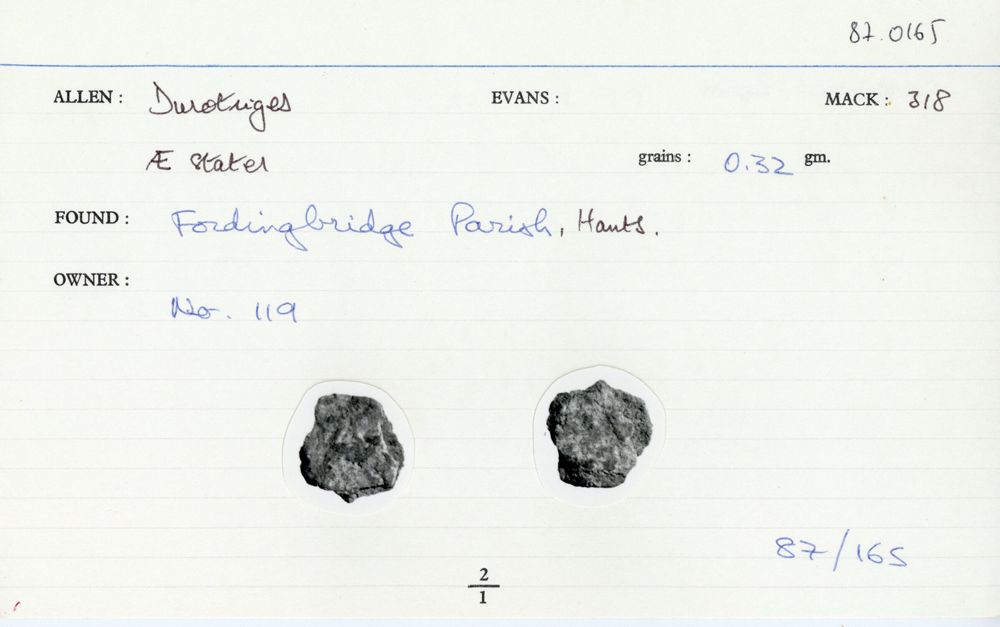 87.0165
ALLEN: Durotriges EVANS: MACK: 318
Æ Stater grains: 0.32 gm.
FOUND: Fordingbridge Parish, Hants.
OWNER:
No. 119
87/165
2
1